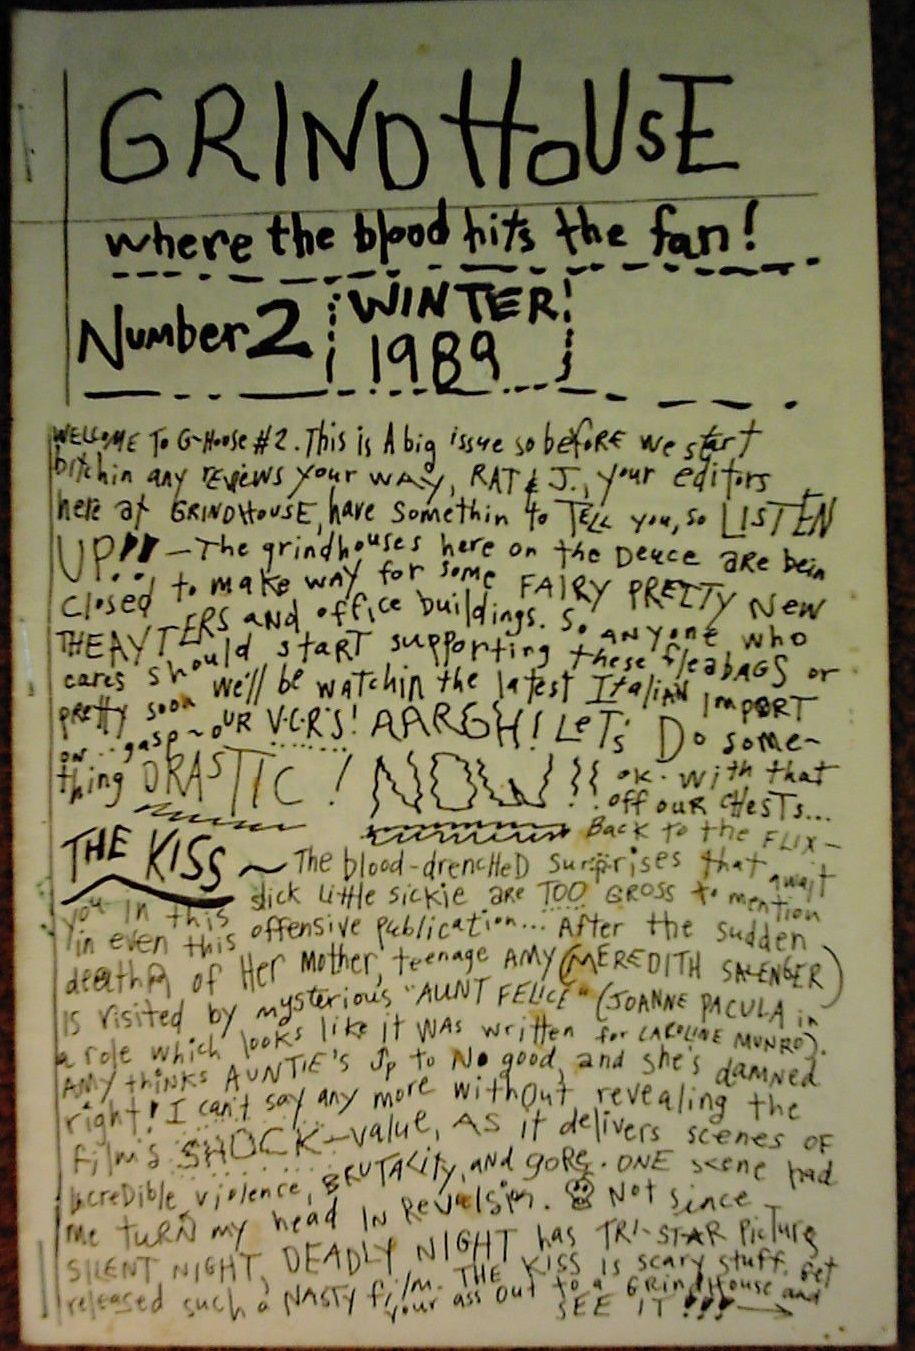 GRINDHOUSE
where the blood hits the fan!
Number 2 WINTER!
1989
WELCOME To G-House #2. This is A big issue so before we start
bitchin any reviews your way, RAT & J., your editors
here at GRINDHOUSE, have somethin to TELL you, so LISTEN
UP!! — The grindhouses here on the Deuce are bein
closed to make way for some FAIRY PRETTY New
THEAYTERS and office buildings. So anyone who
cares should start supporting these fleabags or
pretty soon we'll be watchin the latest Italian Import
on... gasp ~ our V.C.R'S! AARGH! Let's Do some-
thing DRASTIC! NOW!! ok. with that
off our chests...
Back to the FLIX —
THE KISS ~ The blood-drenched surprises that await
you in this slick little sickie are TOO GROSS to mention
in even this offensive publication... After the sudden
death of Her Mother, teenage AMY (MEREDITH SALENGER)
is visited by mysterious "AUNT FELICE" (JOANNE PACULA in
a role which looks like it was written for CAROLINE MUNRO).
AMY thinks AUNTIE'S up to No good, and she's damned
right! I can't say any more without revealing the
film's SHOCK-value, AS it delivers scenes of
Incredible violence, BRUTALITY, and gore. ONE scene had
me turn my head IN Revulsion. Not since
SILENT NIGHT, DEADLY NIGHT has TRI-STAR Picture
released such a NASTY film. THE KISS is scary stuff. Get
your ass out to a GRINDHOUSE and
SEE IT!!!